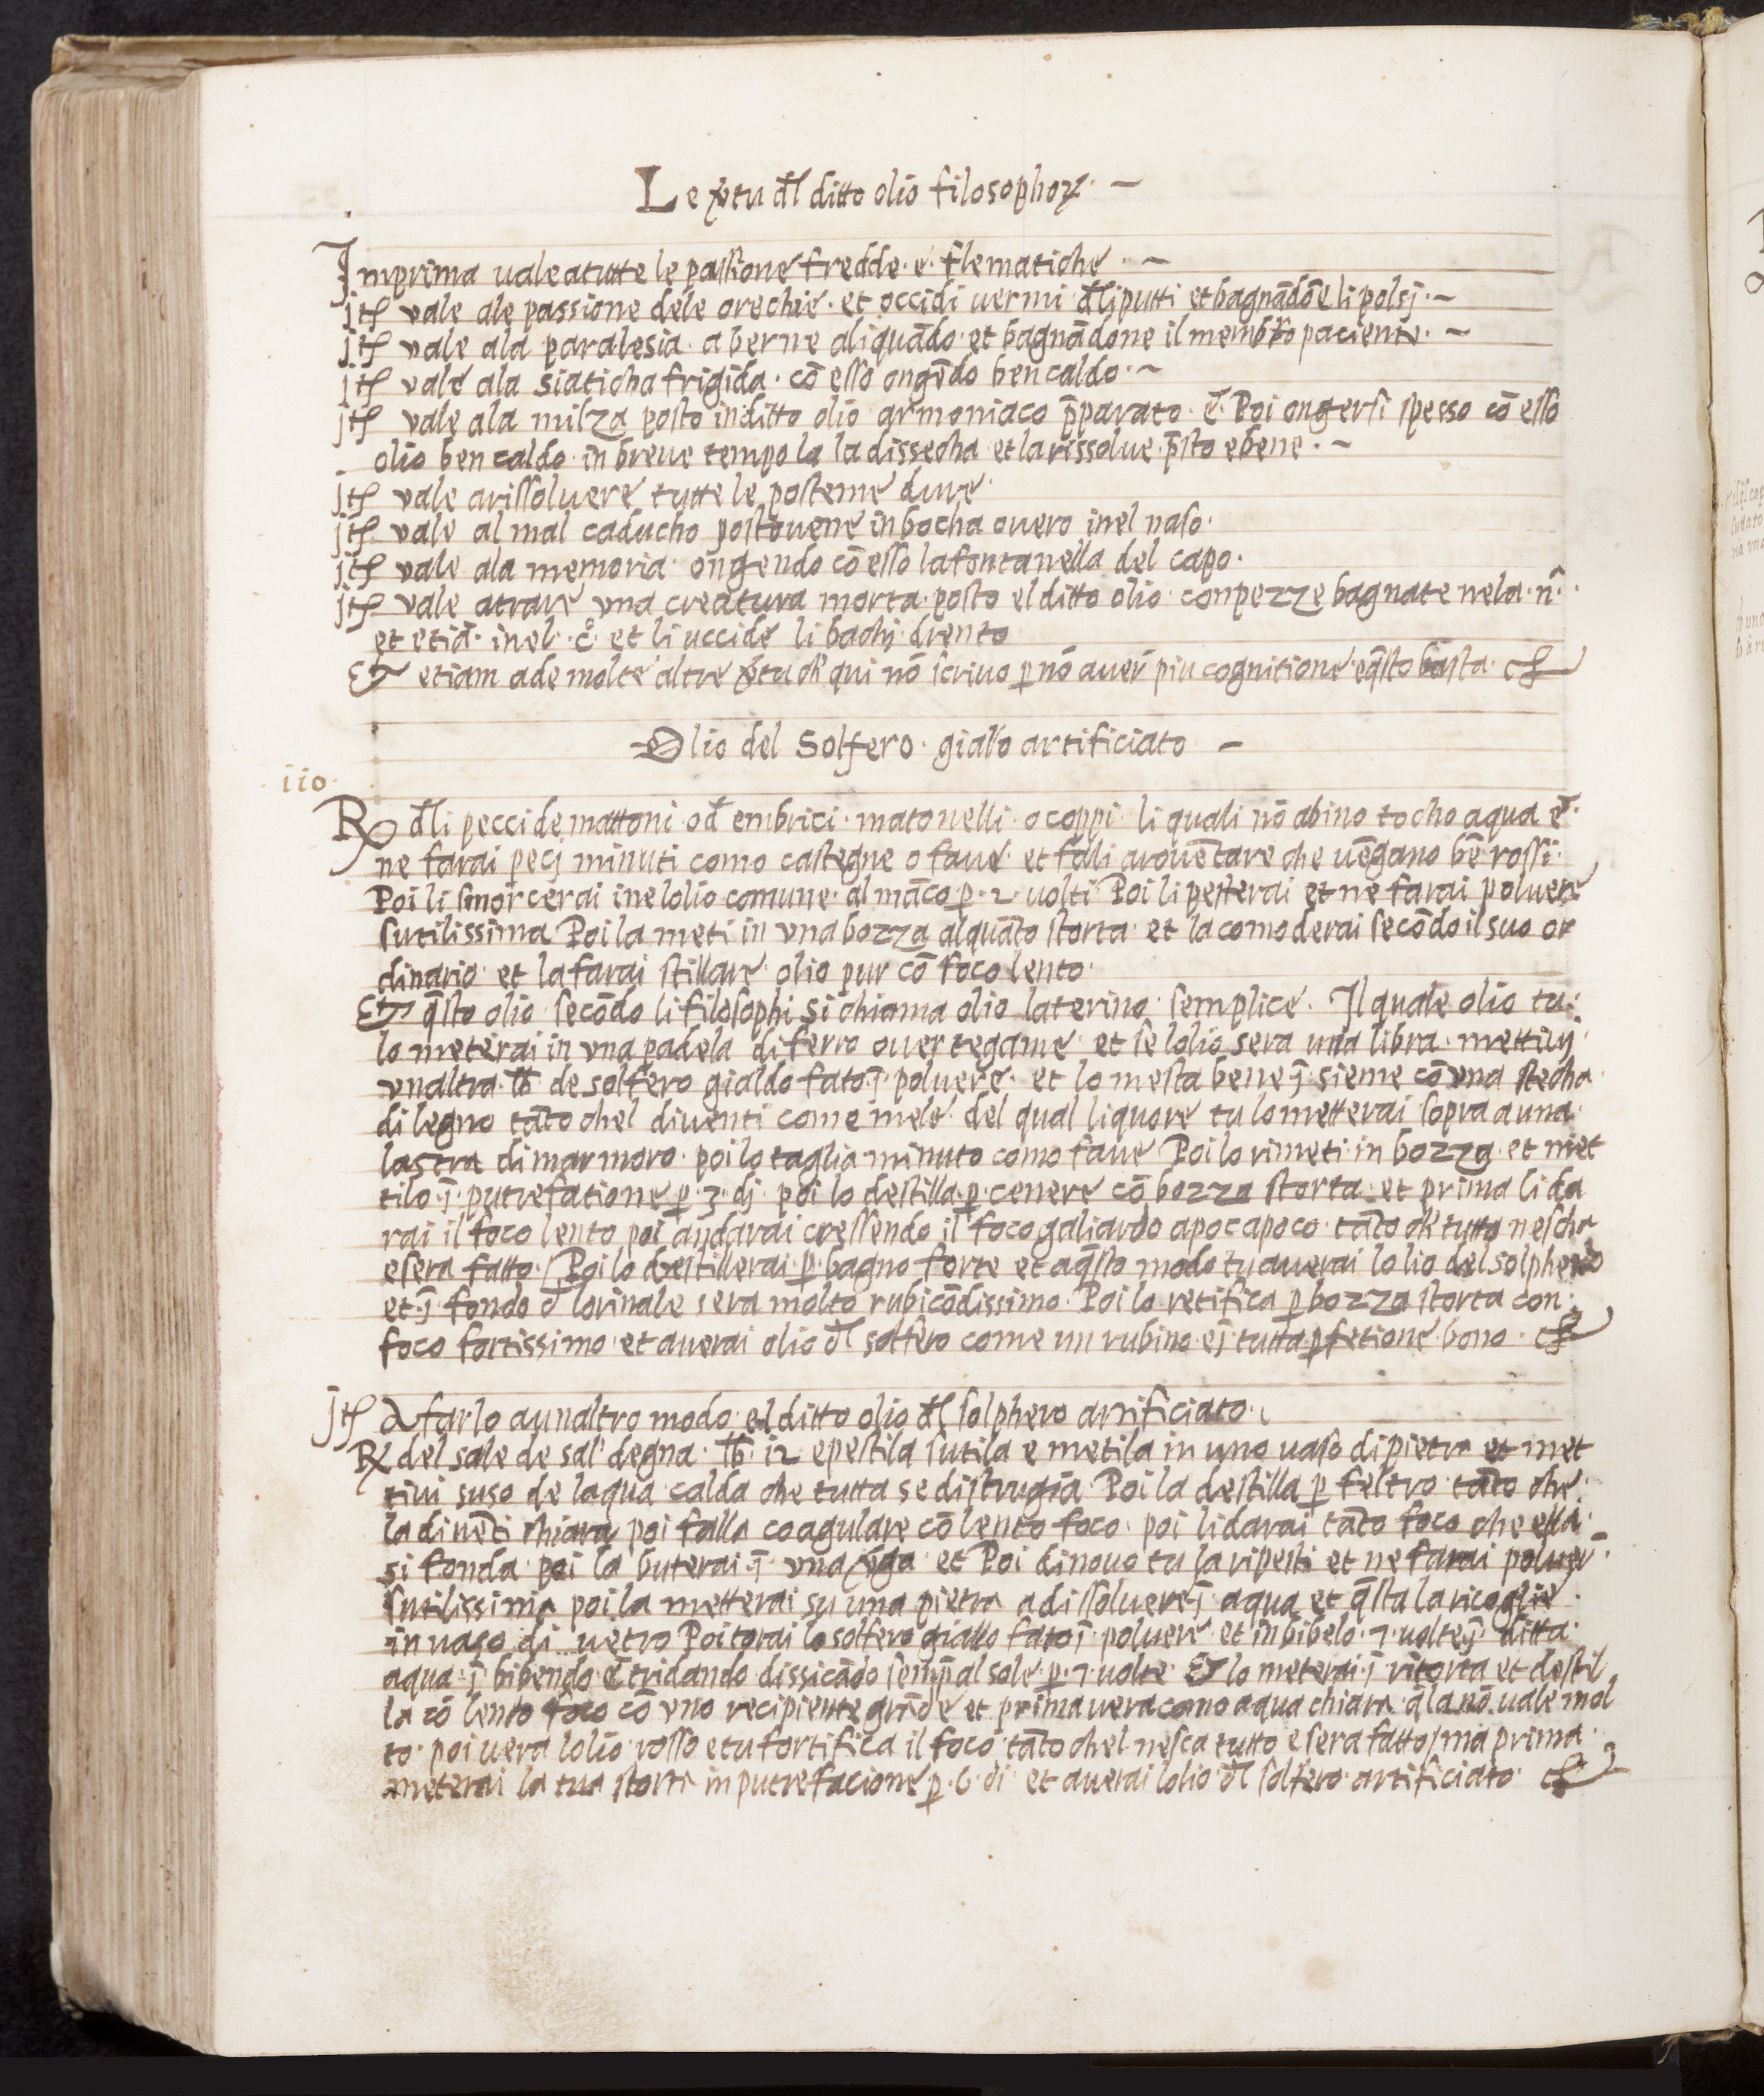 Le v̄tu d̄l ditto olio filosophoꝝ. —
Jmprima uale a tutte le passione fredde. e. flematiche. —
jtꝭ vale ale passione dele orechie. et occidi uermi d̄li putti et bagnādōe li polsj. —
jtꝭ vale ala paralesia. a berne aliquādo. et bagnādone il membro paciente. —
jtꝭ vale ala siaticha frigida. cō esso ongēdo ben caldo. —
jtꝭ vale ala milza posto in ditto olio armoniaco p̄parato. ē. Poi ongersi spesso cō esso
olio ben caldo in breue tempo la la dissecha et la rissolue. p̄sto e bene. —
jtꝭ vale arissoluere tutte le posteme dure.
jtꝭ. vale al mal caducho postouene in bocha ouero inel naso.
jtꝭ vale ala memoria. ongendo cō esso la fontanella del capo.
jtꝭ vale atrare vna creatura morta. posto el ditto olio. con pezze bagnate nela. n̂.
et etiā. inel. c̊. et li uccide li bachj. drento
Et etiam ade molte altre v̄tu ch' qui nō scriuo p nō auer̄ piu cognitione. e q̄sto basta.
Olio del Solfero. giallo artificiato —
iio.
R d̄li pecci de mattoni. o d̄ embrici. matonelli. o coppi. li quali nō abino tocho aqua ē.
ne farai pecj minuti como castegne o faue. et fali arouētare che uēgano bē rossi.
Poi li smorcerai inelolio comune. al māco p. 2. uolti Poi li pesterai et ne farai poluere
sutilissima Poi la meti in vna bozza alquāto storta. et lacomoderai secōdo il suo or
dinario. et la farai stillare. olio pur cō foco lento.
Et q̄sto olio secōdo li filosophi si chiama olio laterino. semplice. Jl quale olio tu.
lo meterai in vna padela di ferro ouer tegame. et se lolio sera una libra. mettiuj.
vnaltra. ℔. de solfero gialdo fato. j̄. poluere. et lo mesta bene j̄. sieme cō vna stecha.
di legno tāto chel diuenti come mele. del qual liquore tu lo metterai sopra a una.
lastra di marmoro. poi lo taglia minuto como faue Poi lo rimeti in bozza. et met
tilo. j̄. putrefatione p. 3. dj. poi lo destilla. p. cenere cō bozza storta. et prima li da
rai il foco lento poi andarai cressendo il foco galiardo apoc apoco. tāto ch' tutto nescha
e sera fatto. / Poi lo destillerai. p. bagno forte et a q̄sto modo tu auerai lo lio del solphero
et. j̄. fondo d̄ lorinale sera molto rubicōdissimo. Poi lo retifica p bozza storta con.
foco fortissimo. et auerai olio d̄l solfero come un rubino. e j̄ tutta pfetione. bono.
jtꝭ A farlo a unaltro modo. el ditto olio d̄l solphero artificiato.
R del sale de sal' degna. ℔. i2 e pestila sutila e metila in uno uaso di pietra et met
tiui suso de laqua calda che tutta se distrugia. Poi la destilla p feltro. tāto che.
la diuēti chiara poi falla coagulare cō lento foco. poi li darai tāto foco che ella.
si fonda. poi la buterai. j̄. vna v̄ga. et Poi di nouo tu la ripesti et ne farai poluer̄.
sutilissima poi la metterai su una pietra a dissoluere j̄. aqua et q̄sta la ricoglie.
in uaso di uetro Poi torai lo solfero giallo fato j̄. poluere. et inbibelo. 7. uolte. j̄. ditta.
aqua. j̄ bibendo. e tridando dissicādo semp̄ al sole. p. 7. uolte. Et lo meterai. j̄ ritorta et destil
la cō lento foco cō vno recipiente grāde et prima uera como aqua chiara q̄la nō uale mol
to. poi uera lolio rosso e tu fortifica il foco. tāto chel nesca tutto e sera fatto / ma prima.
meterai la tua storta in putrefacione p. 6. di et auerai lolio d̄l solfero artificiato.